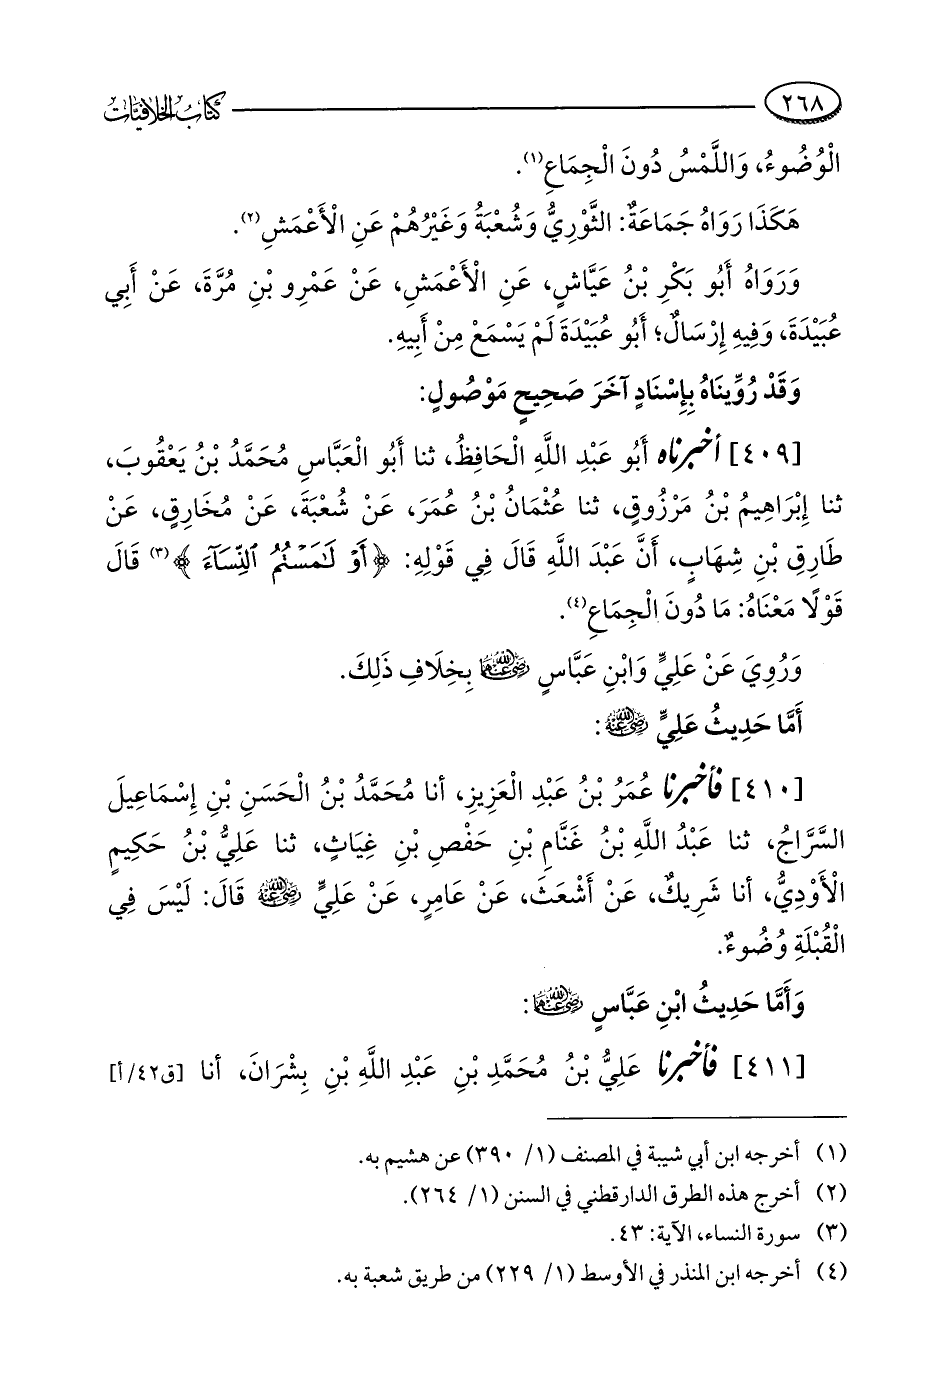 ٢٦٨ كتاب الخلافيات
الْوُضُوءُ، وَاللَّمْسُ دُونَ الْجِمَاعِ(١).
هَكَذَا رَوَاهُ جَمَاعَةٌ: الثَّوْرِيُّ وَشُعْبَةُ وَغَيْرُهُمْ عَنِ الْأَعْمَشِ(٢).
وَرَوَاهُ أَبُو بَكْرِ بْنُ عَيَّاشٍ، عَنِ الْأَعْمَشِ، عَنْ عَمْرِو بْنِ مُرَّةَ، عَنْ أَبِي
عُبَيْدَةَ، وَفِيهِ إِرْسَالٌ؛ أَبُو عُبَيْدَةَ لَمْ يَسْمَعْ مِنْ أَبِيهِ.
وَقَدْ رُوِّينَاهُ بِإِسْنَادٍ آخَرَ صَحِيحٍ مَوْصُولٍ:
[٤٠٩] أخبرناه أَبُو عَبْدِ اللَّهِ الْحَافِظُ، ثنا أَبُو الْعَبَّاسِ مُحَمَّدُ بْنُ يَعْقُوبَ،
ثنا إِبْرَاهِيمُ بْنُ مَرْزُوقٍ، ثنا عُثْمَانُ بْنُ عُمَرَ، عَنْ شُعْبَةَ، عَنْ مُخَارِقٍ، عَنْ
طَارِقِ بْنِ شِهَابٍ، أَنَّ عَبْدَ اللَّهِ قَالَ فِي قَوْلِهِ: ﴿أَوْ لَٰمَسْتُمُ ٱلنِّسَآءَ﴾(٣) قَالَ
قَوْلًا مَعْنَاهُ: مَا دُونَ الْجِمَاعِ(٤).
وَرُوِيَ عَنْ عَلِيٍّ وَابْنِ عَبَّاسٍ رضي الله عنهما بِخِلَافِ ذَلِكَ.
أَمَّا حَدِيثُ عَلِيٍّ رضي الله عنه:
[٤١٠] فأخبرنا عُمَرُ بْنُ عَبْدِ الْعَزِيزِ، أنا مُحَمَّدُ بْنُ الْحَسَنِ بْنِ إِسْمَاعِيلَ
السَّرَّاجُ، ثنا عَبْدُ اللَّهِ بْنُ غَنَّامِ بْنِ حَفْصِ بْنِ غِيَاثٍ، ثنا عَلِيُّ بْنُ حَكِيمٍ
الْأَوْدِيُّ، أنا شَرِيكٌ، عَنْ أَشْعَثَ، عَنْ عَامِرٍ، عَنْ عَلِيٍّ رضي الله عنه قَالَ: لَيْسَ فِي
الْقُبْلَةِ وُضُوءٌ.
وَأَمَّا حَدِيثُ ابْنِ عَبَّاسٍ رضي الله عنهما:
[٤١١] فأخبرنا عَلِيُّ بْنُ مُحَمَّدِ بْنِ عَبْدِ اللَّهِ بْنِ بِشْرَانَ، أنا [ق٤٢/أ]
(١) أخرجه ابن أبي شيبة في المصنف (١/ ٣٩٠) عن هشيم به.
(٢) أخرج هذه الطرق الدارقطني في السنن (١/ ٢٦٤).
(٣) سورة النساء، الآية: ٤٣.
(٤) أخرجه ابن المنذر في الأوسط (١/ ٢٢٩) من طريق شعبة به.